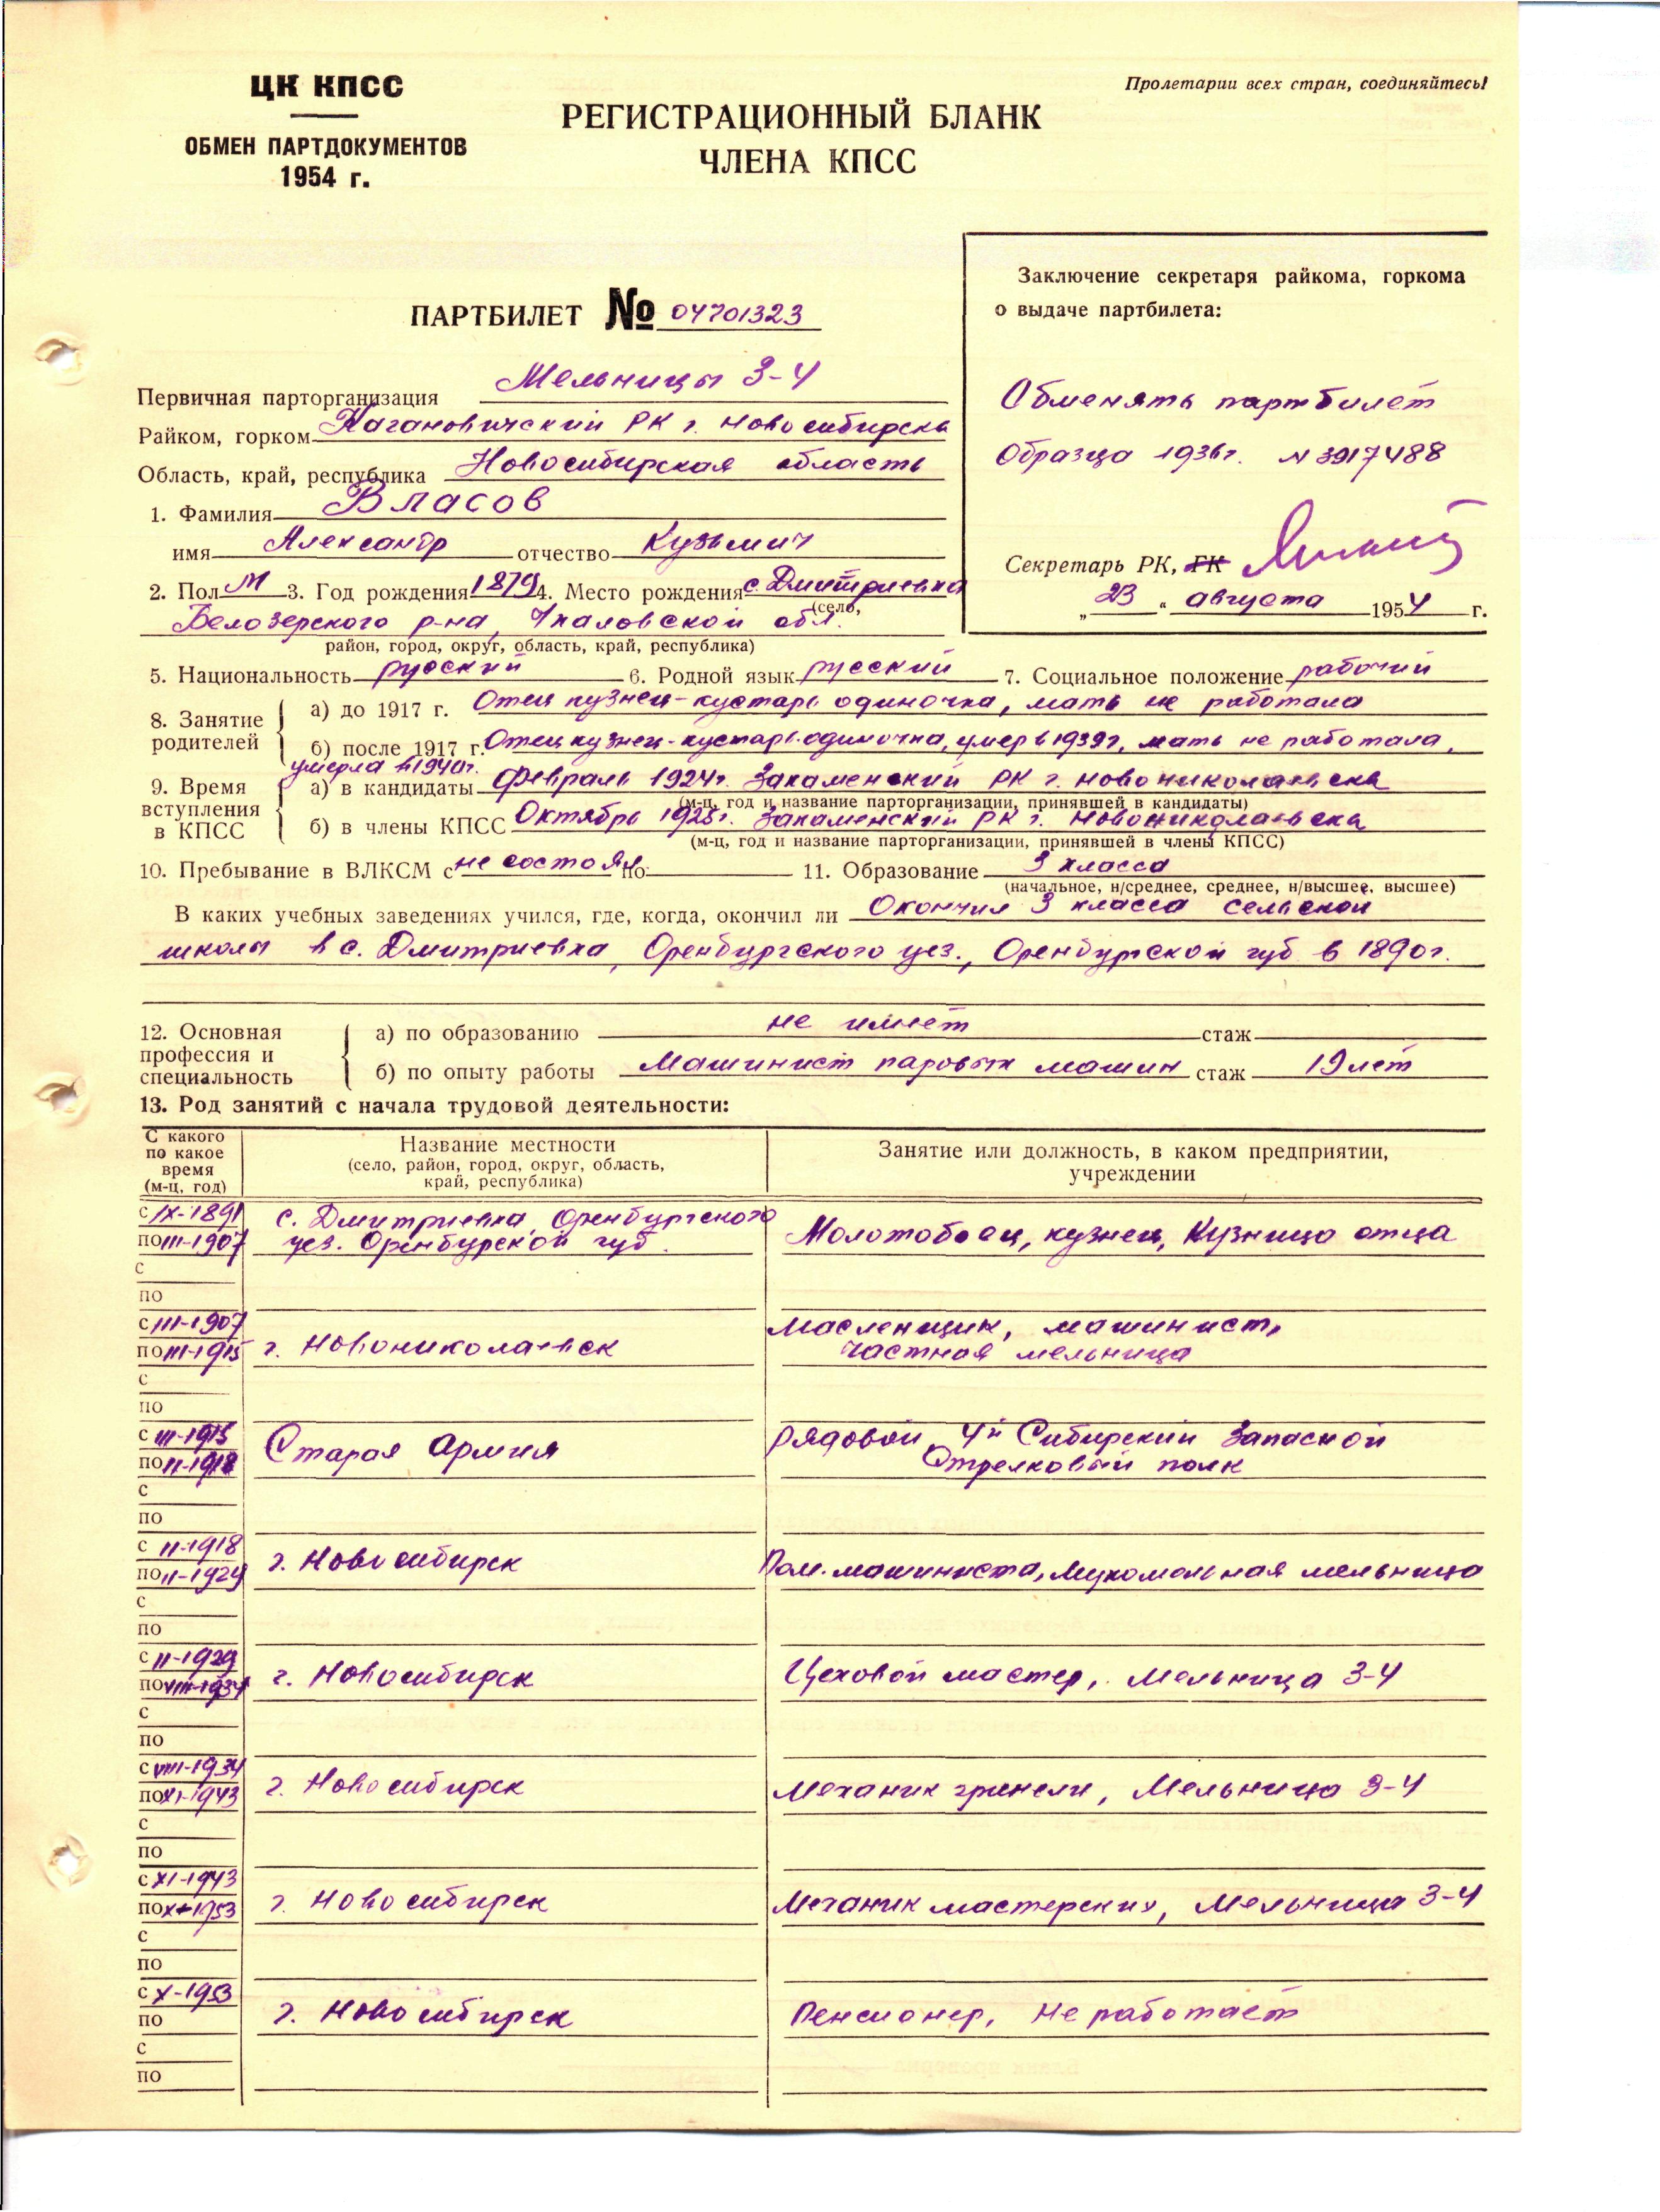 ЦК КПСС
ОБМЕН ПАРТДОКУМЕНТОВ
1954 г.
Пролетарии всех стран, соединяйтесь!
РЕГИСТРАЦИОННЫЙ БЛАНК
ЧЛЕНА КПСС
ПАРТБИЛЕТ № 04701323
Первичная парторганизация Мельницы 3-4
Райком, горком Кагановичский РК г. Новосибирска
Область, край, республика Новосибирская область
1. Фамилия Власов
имя Александр отчество Кузьмич
2. Пол М 3. Год рождения 1879 4. Место рождения с. Дмитриевка
(село,
Белозерского р-на, Чкаловской обл.
район, город, округ, область, край, республика)
Заключение секретаря райкома, горкома
о выдаче партбилета:
Обменять партбилет
Образца 1936г. N 3917488
Секретарь РК, ГК
„23“ августа 1954 г.
5. Национальность русский 6. Родной язык русский 7. Социальное положение рабочий
8. Занятие родителей
а) до 1917 г. Отец кузнец-кустарь одиночка, мать не работала
б) после 1917 г. Отец кузнец-кустарь одиночка, умер в 1939г, мать не работала,
умерла в 1940г.
9. Время вступления в КПСС
а) в кандидаты февраль 1924г. Закаменский РК г. Новониколаевска
(м-ц, год и название парторганизации, принявшей в кандидаты)
б) в члены КПСС Октябрь 1925г. Закаменский РК г. Новониколаевска
(м-ц, год и название парторганизации, принявшей в члены КПСС)
10. Пребывание в ВЛКСМ с не состоял по 11. Образование 3 класса
(начальное, н/среднее, среднее, н/высшее, высшее)
В каких учебных заведениях учился, где, когда, окончил ли Окончил 3 класса сельской
школы в с. Дмитриевка, Оренбургского уез., Оренбургской губ в 1890г.
12. Основная профессия и специальность
а) по образованию не имеет стаж
б) по опыту работы Машинист паровых машин стаж 19 лет
13. Род занятий с начала трудовой деятельности:
С какого по какое время (м-ц, год)
Название местности
(село, район, город, округ, область,
край, республика)
Занятие или должность, в каком предприятии,
учреждении
с IX-1891 с. Дмитриевка, Оренбургского
по III-1907 уез. Оренбурской губ. Молотобоец, кузнец, Кузница отца
с
по
с III-1907 Масленщик, машинист,
по III-1915 г. Новониколаевск частная мельница
с
по
с III-1915 Старая Армия рядовой, 4й Сибирский Запасной
по II-1918 Стрелковый полк
с
по
с II-1918
по II-1929 г. Новосибирск Пом. машиниста, Мукомольная мельница
с
по
с II-1929
по VIII-1934 г. Новосибирск Цеховой мастер, Мельница 3-4
с
по
с VIII-1934
по XI-1943 г. Новосибирск Механик гринели, Мельница 3-4
с
по
с XI-1943
по X-1953 г. Новосибирск Механик мастерских, Мельница 3-4
с
по
с X-1953
по г. Новосибирск Пенсионер, Не работает
с
по